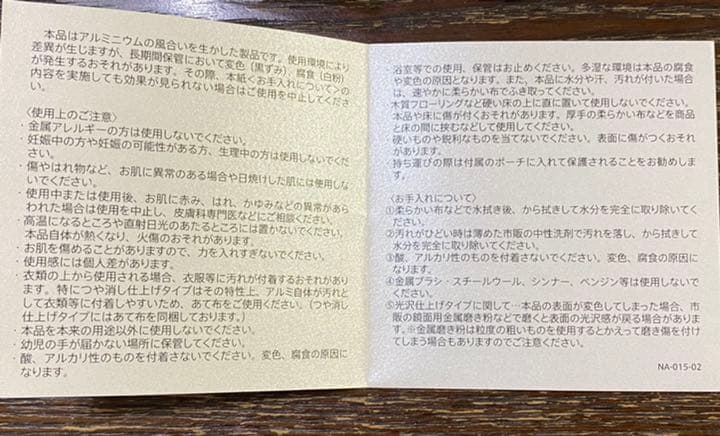 本品はアルミニウムの風合いを生かした製品です。使用環境により
差異が生じますが、長期間保管において変色（黒ずみ）、腐食（白粉）
が発生するおそれがあります。その際、本紙＜お手入れについて＞の
内容を実施しても効果が見られない場合はご使用を中止してくだ
さい。
〈使用上のご注意〉
・金属アレルギーの方は使用しないでください。
・妊娠中の方や妊娠の可能性がある方、生理中の方は使用しないでくだ
さい。
・傷やはれ物など、お肌に異常のある場合や日焼けした肌には使用し
ないでください。
・使用中または使用後、お肌に赤み、はれ、かゆみなどの異常があら
われた場合は使用を中止し、皮膚科専門医などにご相談ください。
・高温になるところや直射日光のあたるところには置かないでください。
本品自体が熱くなり、火傷のおそれがあります。
・お肌を傷めることがありますので、力を入れすぎないでください。
・使用感には個人差があります。
・衣類の上から使用される場合、衣服等に汚れが付着するおそれがあり
ます。特につや消し仕上げタイプはその特性上、アルミ自体が汚れと
して衣類等に付着しやすいため、あて布をご使用ください。（つや消し
仕上げタイプにはあて布を同梱しております。）
・本品を本来の用途以外に使用しないでください。
・幼児の手が届かない場所に保管してください。
・酸、アルカリ性のものを付着させないでください。変色、腐食の原因に
なります。
浴室等での使用、保管はお止めください。多湿な環境は本品の腐食
や変色の原因となります。また、本品に水分や汗、汚れが付いた場合
は、速やかに柔らかい布でふき取ってください。
木質フローリングなど硬い床の上に直に置いて使用しないでください。
本品や床に傷が付くおそれがあります。厚手の柔らかい布などを商品
と床の間に挟むなどして使用してください。
硬いものや鋭利なものを当てないでください。表面に傷がつくおそれ
があります。
持ち運びの際は付属のポーチに入れて保護されることをお勧めしま
す。
〈お手入れについて〉
①柔らかい布などで水拭き後、から拭きして水分を完全に取り除いてく
ださい。
②汚れがひどい時は薄めた市販の中性洗剤で汚れを落し、から拭きし
て水分を完全に取り除いてください。
③酸、アルカリ性のものを付着させないでください。変色、腐食の原因に
なります。
④金属ブラシ・スチールウール、シンナー、ベンジン等は使用しないでく
ださい。
⑤光沢仕上げタイプに関して…本品の表面が変色してしまった場合、市
販の鏡面用金属磨き粉などで磨くと表面の光沢感が戻る場合がありま
す。※金属磨き粉は粒度の粗いものを使用するとかえって磨き傷を付け
てしまう場合もありますのでご注意ください。
NA-015-02